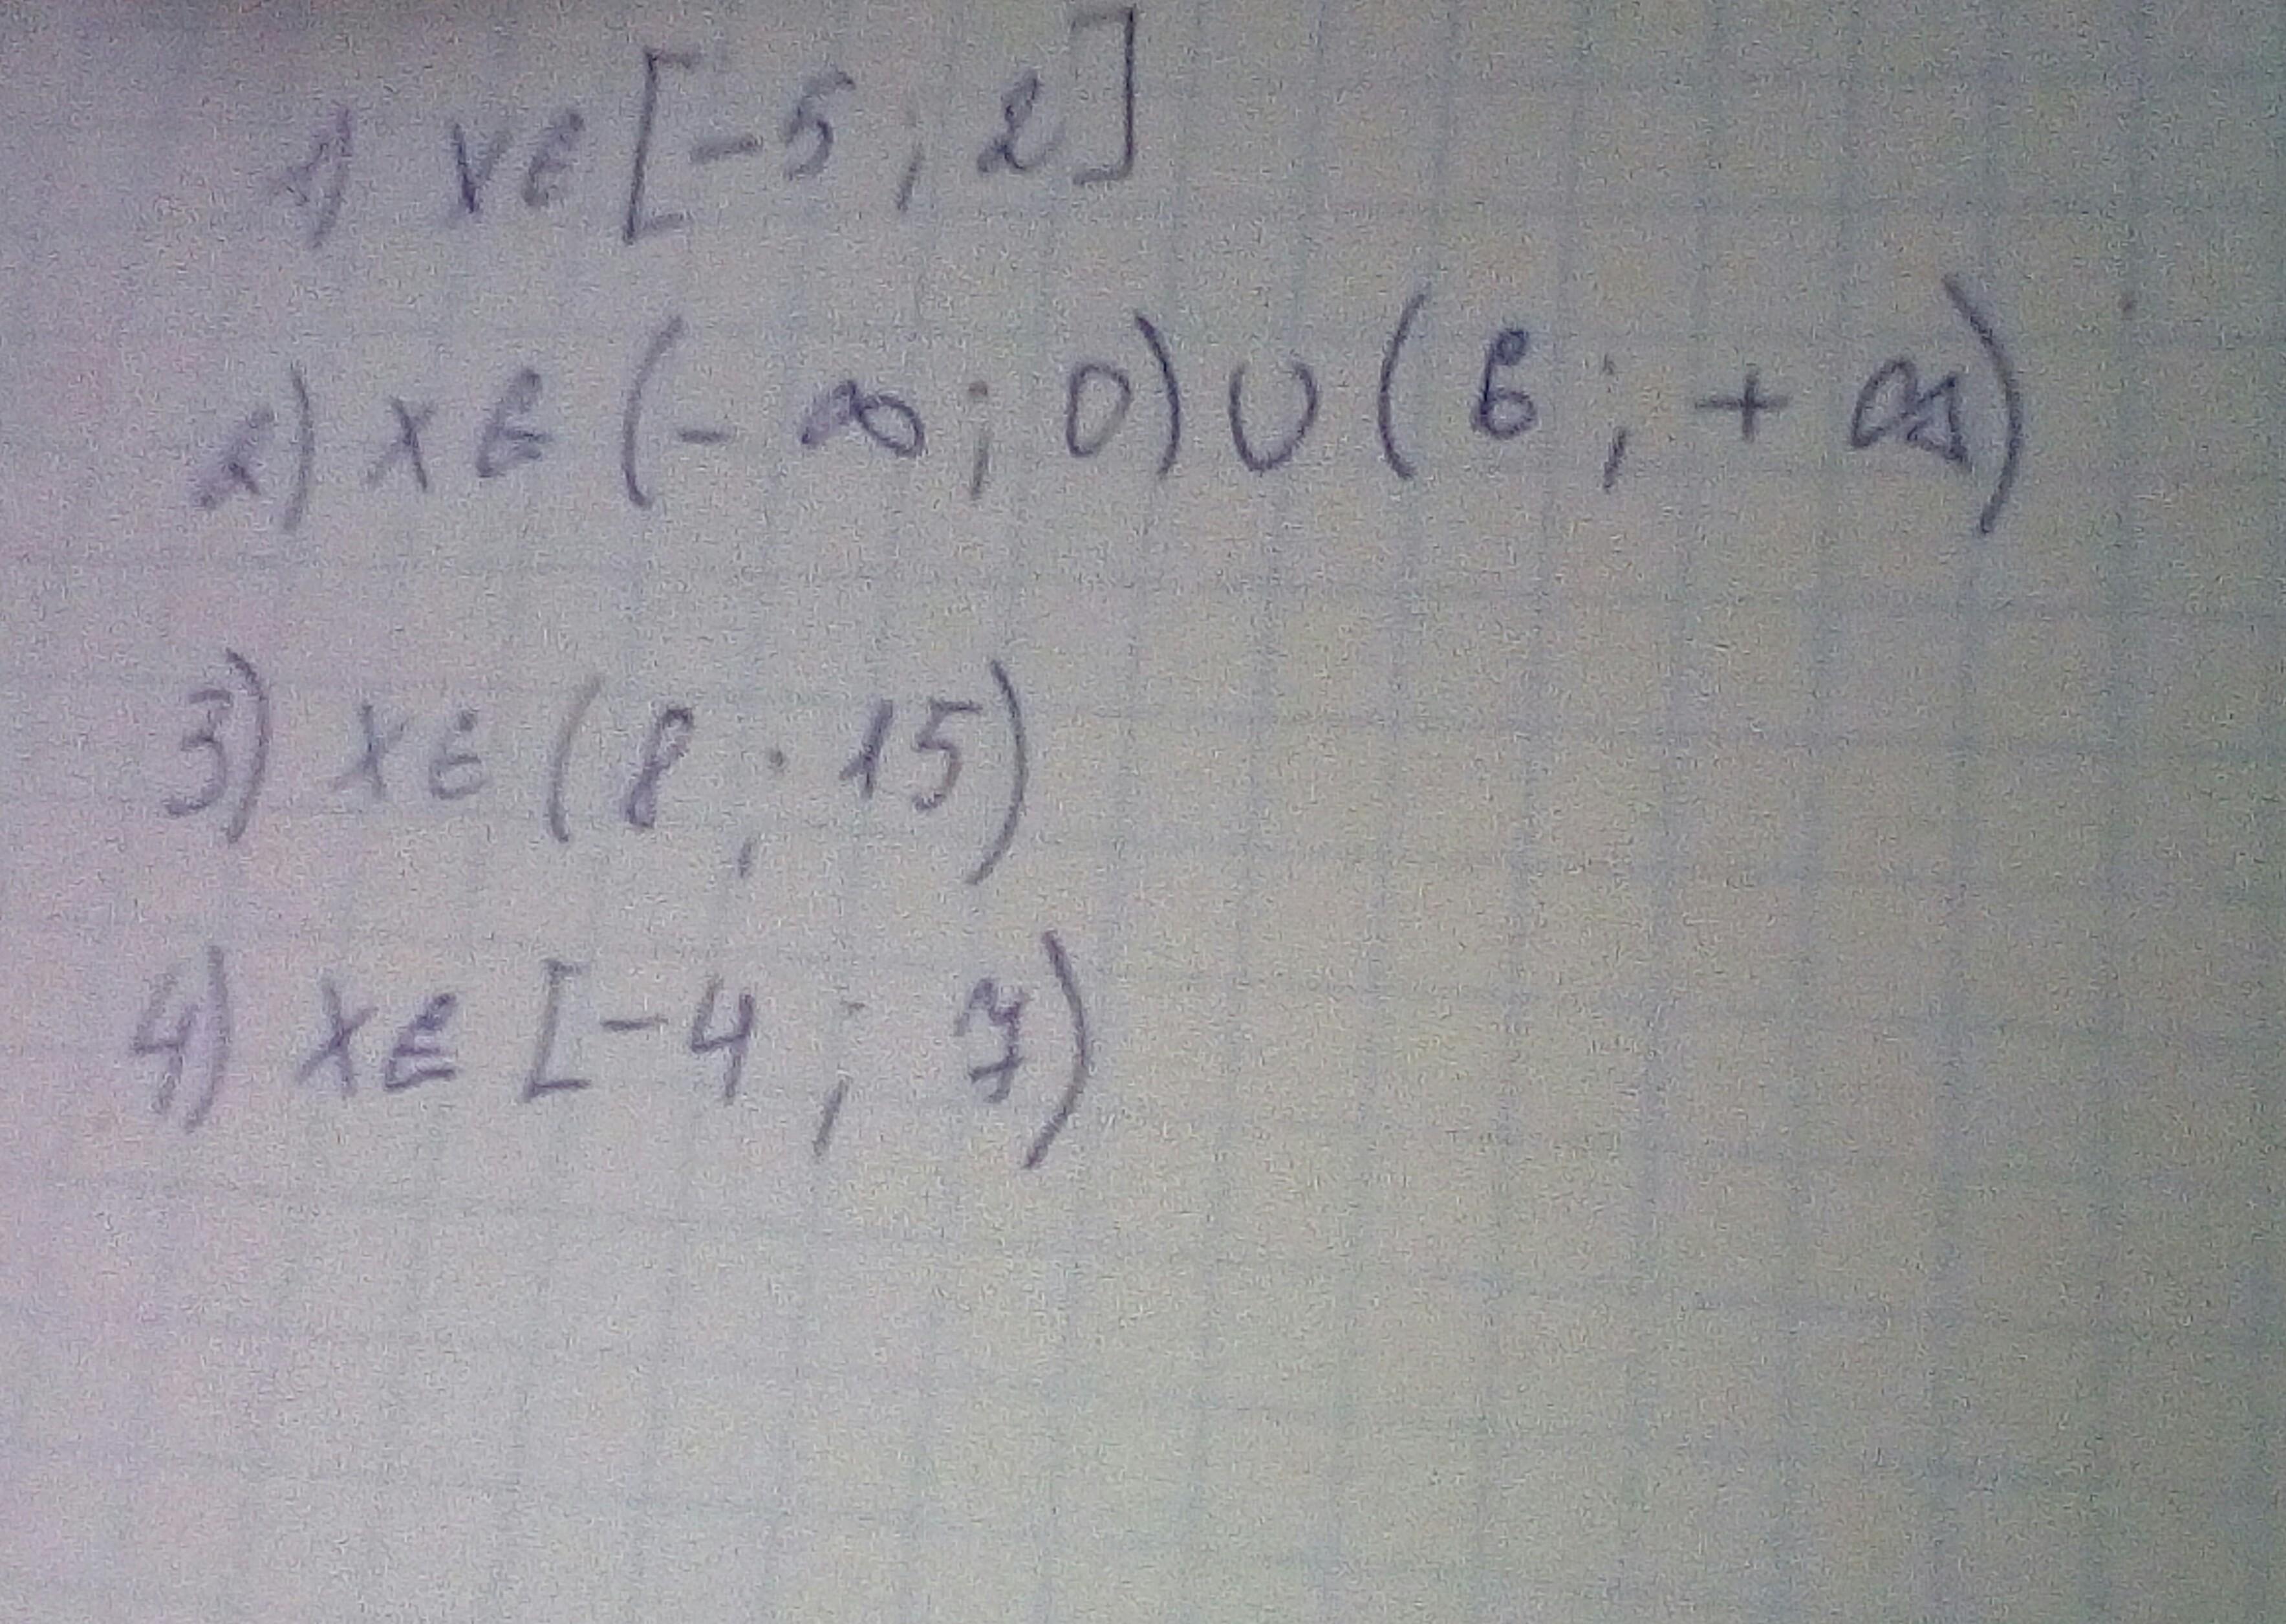 1) x∈[-5; 2]
2) x∈(-∞; 0)∪(6; +∞)
3) x∈(8; 15)
4) x∈[-4; 7)